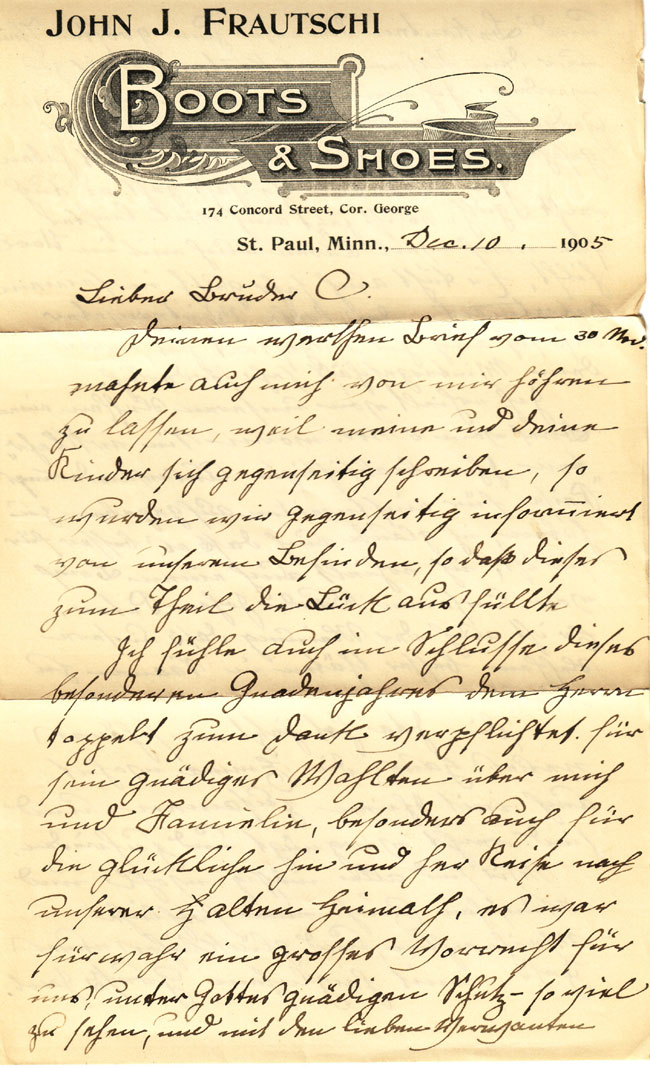 JOHN J. FRAUTSCHI
BOOTS
& SHOES.
174 Concord Street, Cor. George
St. Paul, Minn., Dec. 10. 1905
Lieber Bruder C.
Deinen werthen Brief vom 30 Nov.
mahnte auch mich von mir höhren
zu lassen, weil meine und deine
Kinder sich gegenseitig schreiben, so
wurden wir gegenseitig informiert
von unserem Befinden, so daß dieses
zum Theil die Lück ausfüllte
Ich fühle auch im Schlusse dieses
besonderen Gnadenjahres dem Herrn
toppelt zum Dank verpflichtet. für
sein gnädiges Wahlten über mich
und Famielie, besonders auch für
die glückliche hin und her Reise nach
unserer alten Heimath, es war
fürwahr ein grosses Vorrecht für
uns, unter Gottes gnädigen Schutz - so viel
zu sehen, und mit den lieben Verwanten